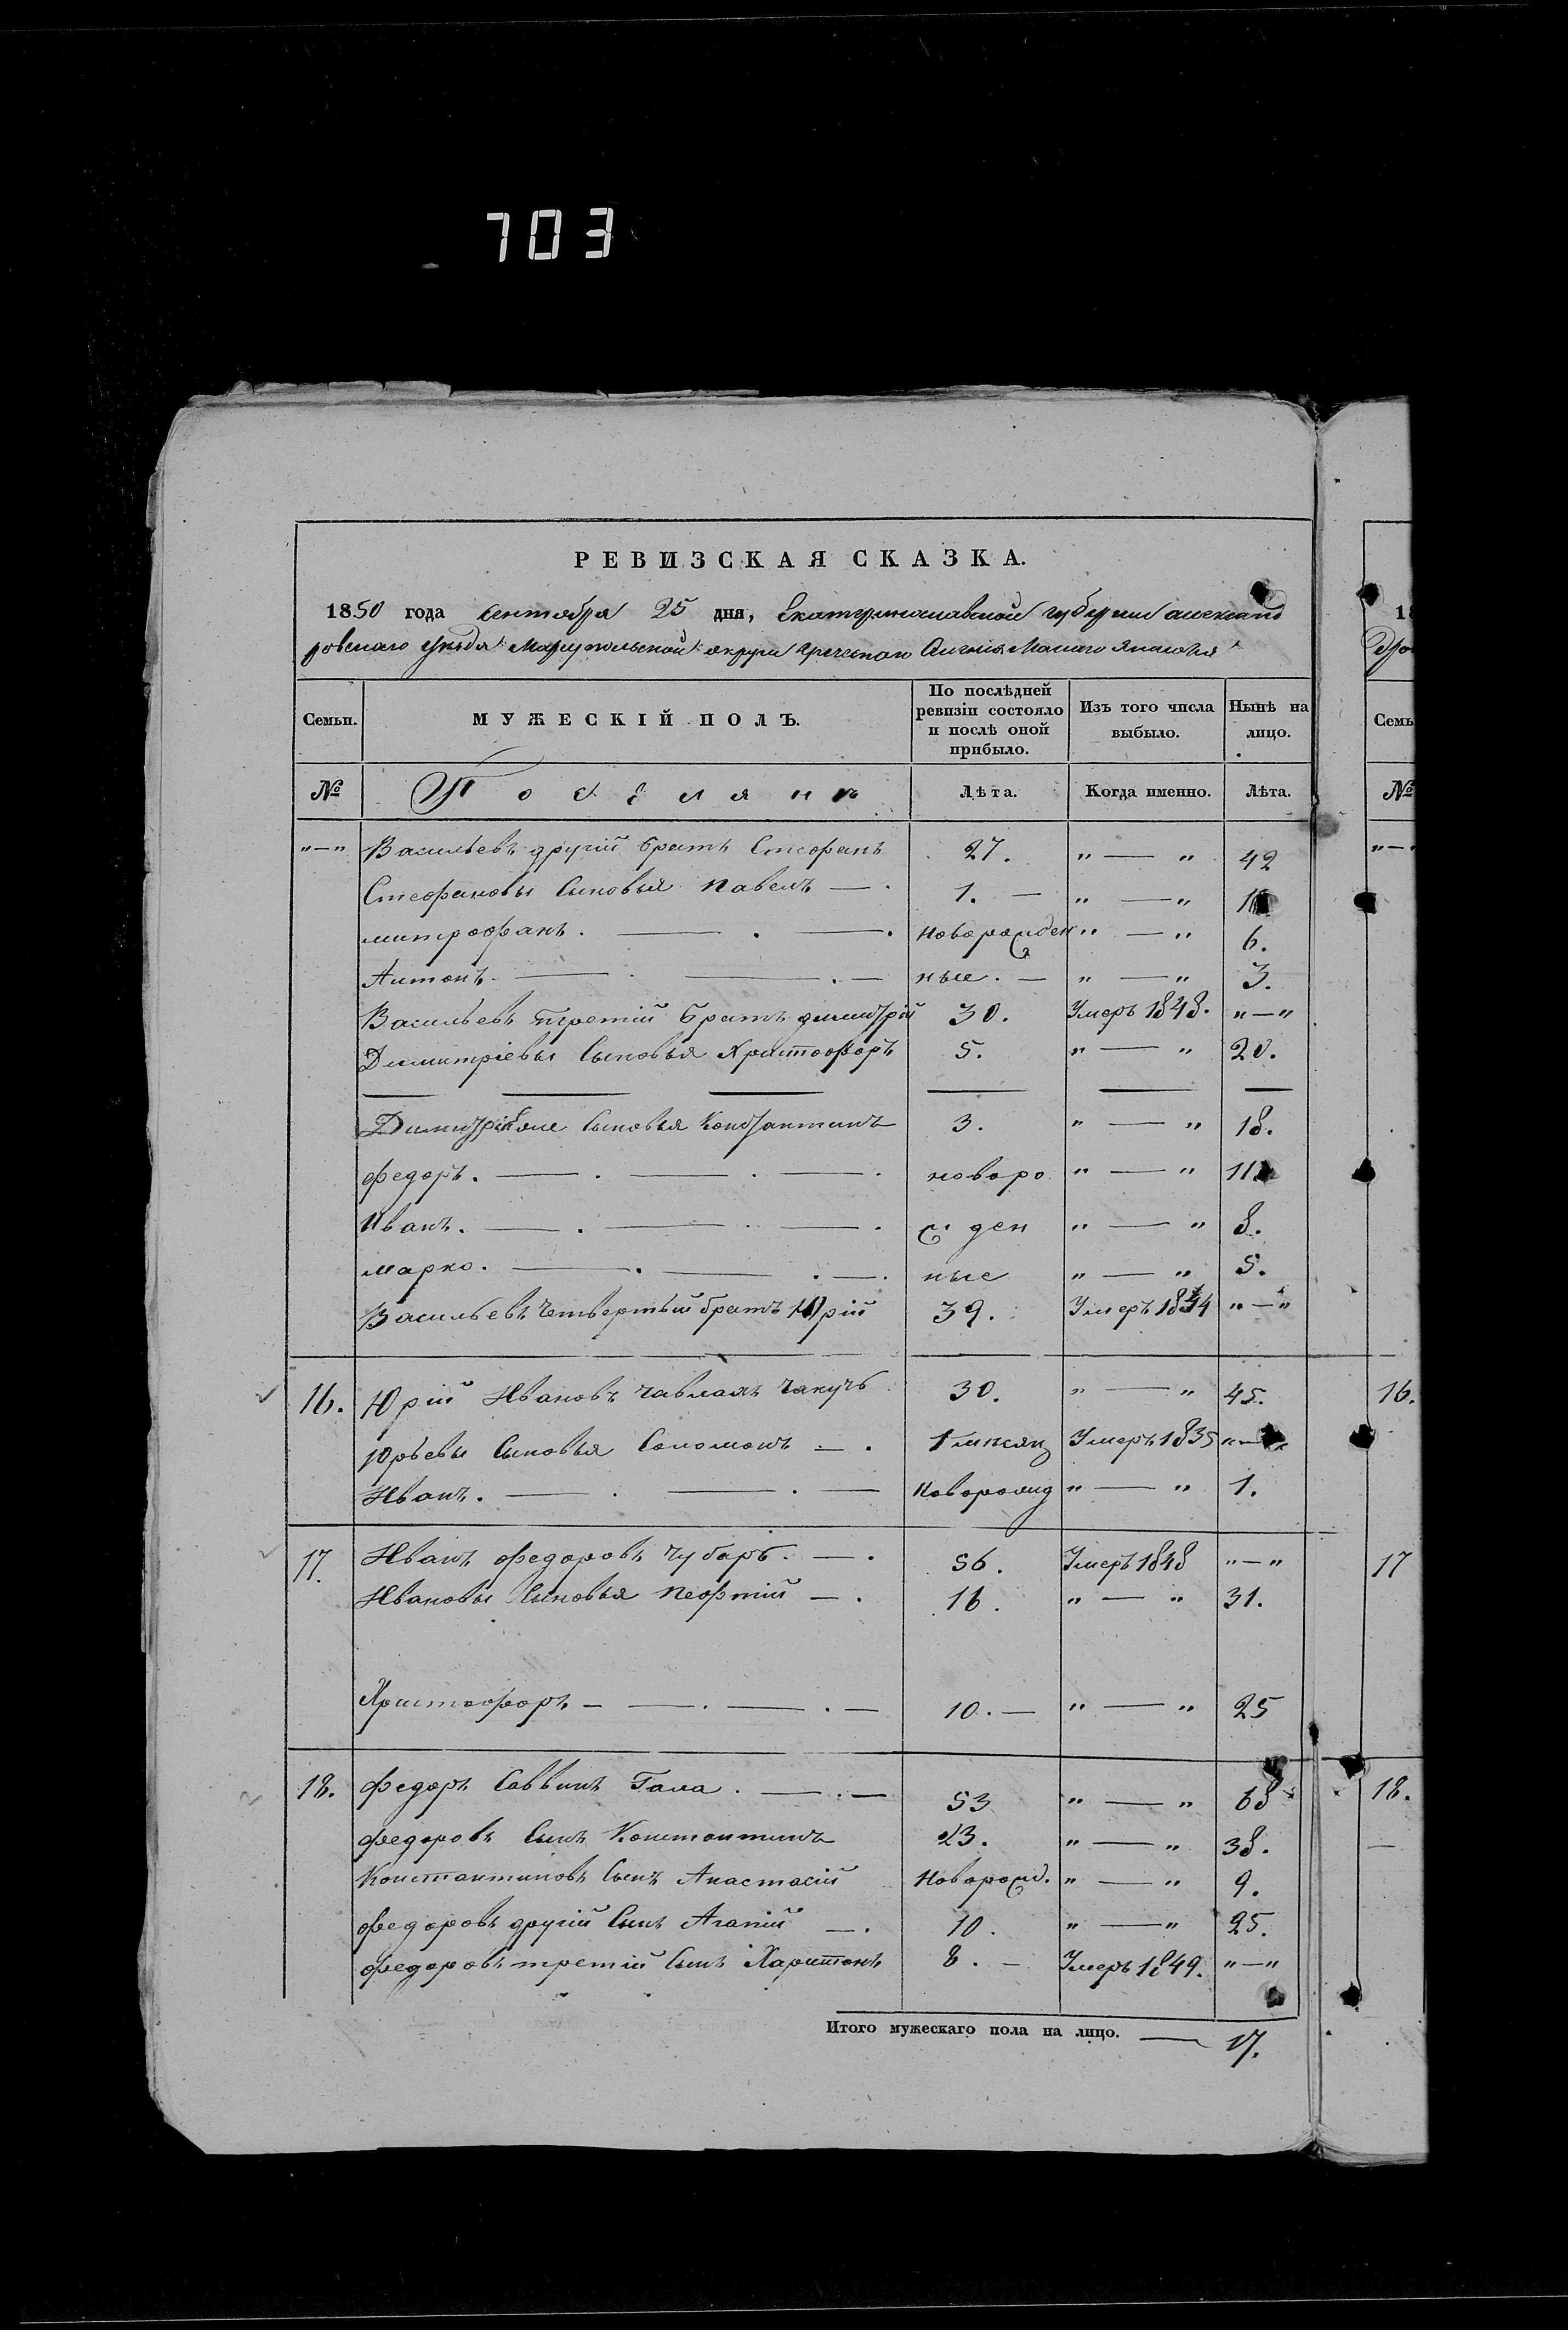 703
РЕВИЗСКАЯ СКАЗКА.
1850 года Сентября 25 дня, Екатеринославской губернии александ
ровскаго уезда Мариупольской округи греческаго Малаго Янисоля
Семьи. МУЖЕСКІЙ ПОЛЪ. По послѣдней ревизіи состояло и послѣ оной прибыло. Изъ того числа выбыло. Нынѣ на лицо.
№ Поселянъ Лѣта. Когда именно. Лѣта.
"—" Васильевъ другій братъ Стефанъ 27. "—" 42
Стефановы Сыновья Павелъ — . 1. — "—"
митрофанъ. — . — . новорожден "—" 6.
Антонъ. — . — . — ные. — "—" 3.
Васильевъ третій братъ димитрій 30. Умеръ 1848. "—"
Димитріевы Сыновья Христофоръ 5. "—" 20.
Сыновья Константинъ 3. "—" 18.
федоръ. — . — . — . новоро "—" 11
Иванъ. — . — . — . ж ден "—" 8.
марко. — . — . — . ные "—" 5.
Васильевъ четвертый братъ Юрій 39. Умеръ 1844 "—"
16. Юрій Ивановъ 30. "—" 45.
Юрьевы Сыновья Соломонъ — . 1 мѣсяц Умеръ 1835 "—"
Иванъ. — . — . — Новорожд "—" 1.
17. Иванъ федоровъ Чубаръ. — . 56. Умеръ 1848 "—"
Ивановы Сыновья Неофтій — . 16. "—" 31.
Христофоръ — — . — . — 10. — "—" 25
18. федоръ Саввинъ Гала . — . — 53 "—" 68
федоровъ Сынъ Константинъ 23. "—" 38.
Константиновъ Сынъ Анастасій Новорожд. "—" 9.
федоровъ другій Сынъ Агапій — . 10. "—" 25.
федоровъ третій Сынъ Харитонъ 8. — Умеръ 1849. "—"
Итого мужескаго пола на лицо. — 17.
18
Семь
№
"—"
16.
17
18.